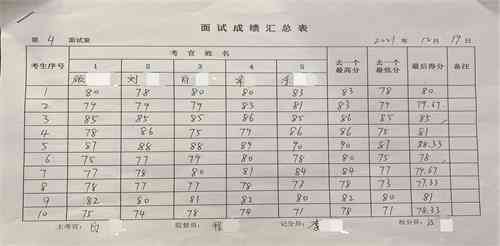 面试成绩汇总表
第 4 面试室 2021 年 12 月 19 日
考生序号 考官姓名 去一个最高分 去一个最低分 最后得分 备注
1 2 3 4 5
张 刘 白 李
1 80 78 80 80 83 83 78 80
2 79 79 79 83 81 83 79 79.67
3 85 85 85 86 85 86 85 85
4 78 86 75 79 86 86 75 81
5 87 88 88 89 90 90 87 88.33
6 75 77 79 80 78 80 75 78
7 77 78 80 81 84 84 77 79.67
8 78 77 77 78 78 73 77.33
9 82 80 81 82 80 82 80 81
10 75 74 78 74 71 78 71 78.33
主考官: 白 监督员: 程 记分员: 李 核分员: